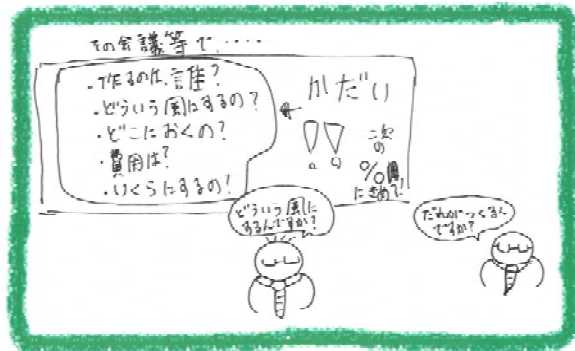 その会議等で、・・・・
・作るのは、誰?
・どういう風にするの?
・どこにおくの?
・費用は?
・いくらにするの?
かだい
!!
次の
%
にきめて!
どういう風に
するんですか?
ですか?